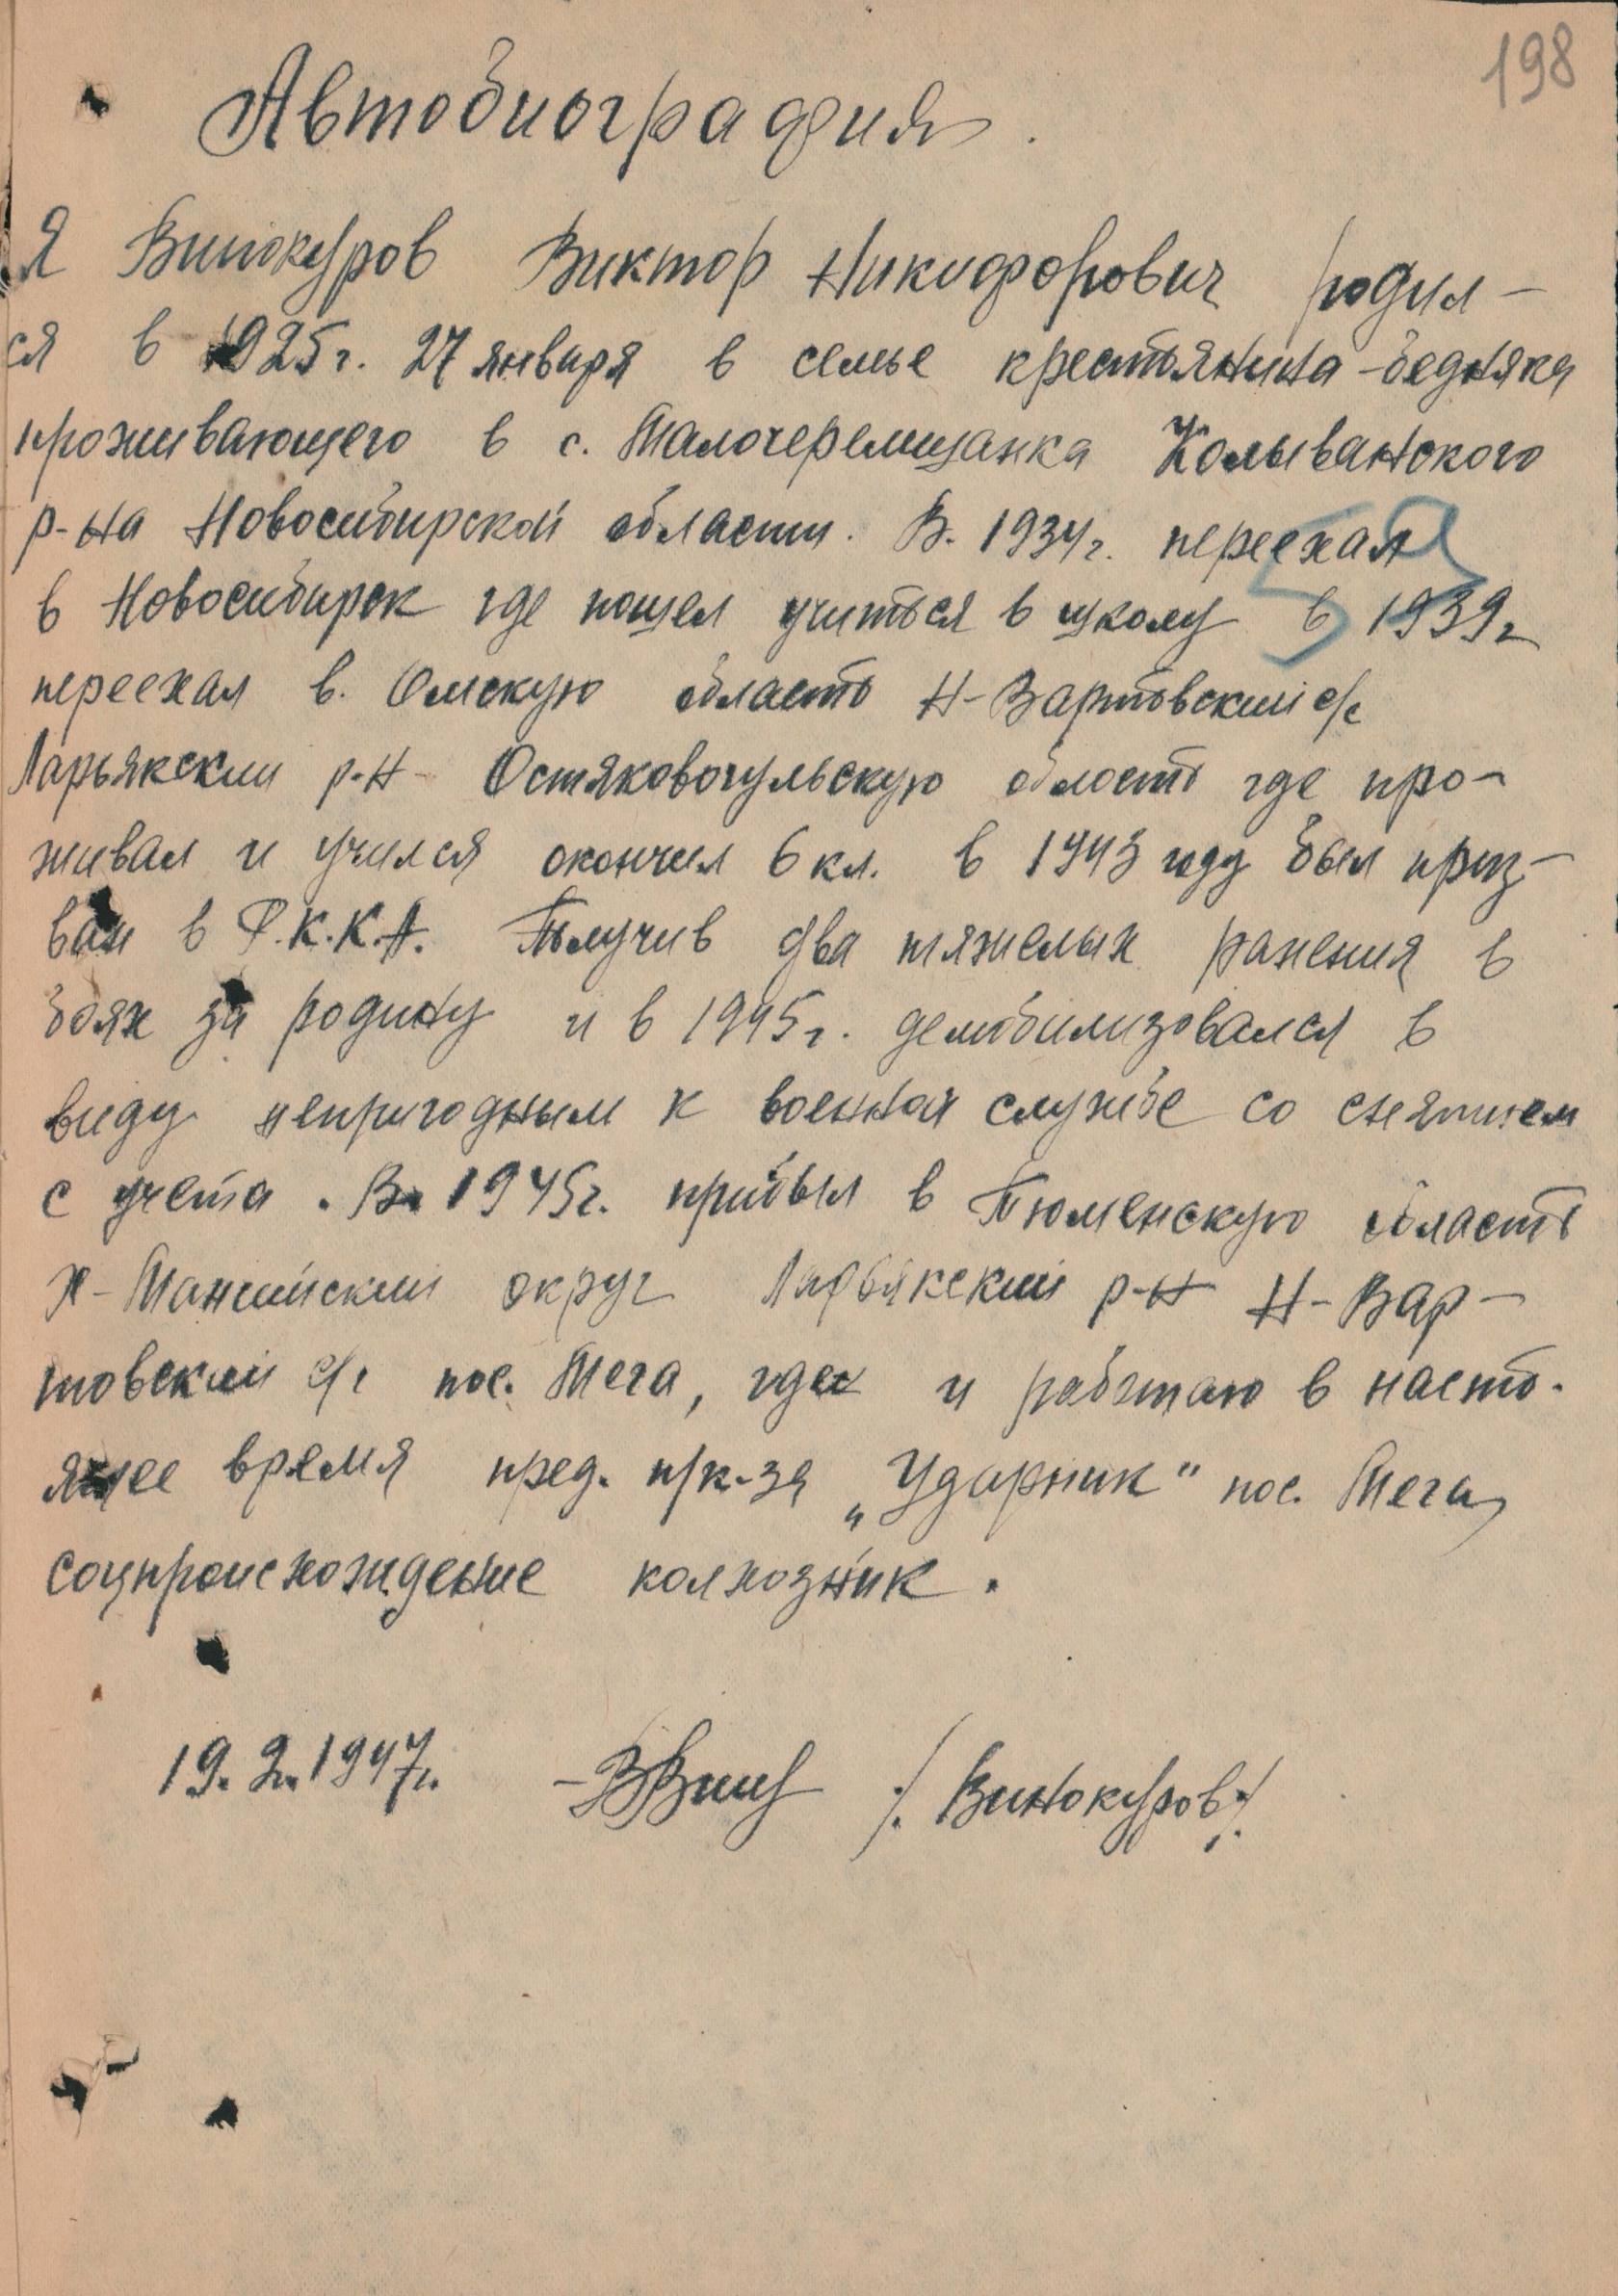 198
Автобиография.
Я Винокуров Виктор Никифорович родил-
ся в 1925г. 27 января в семье крестьянина-бедняка
проживающего в с. Малочеремшанка Колыванского
р-на Новосибирской области. В. 1934г. переехал
в Новосибирск где пошел учиться в школу в 1939г
переехал в. Омскую область Н-Вартовский с/с
Ларьякский р-н Остяковогульскую область где про-
живал и учился окончил 6 кл. в 1943 году был приз-
ван в Р.К.К.А. Получив два тяжелых ранения в
боях за родину и в 1945г. демобилизовался в
виду непригодным к военной службе со снятием
с учета. В. 1945г. прибыл в Тюменскую область
Х-Мансийский округ Ларьякский р-н Н-Вар-
товский с/с пос. Мега, где и работаю в насто-
ящее время пред. п/к-за „Ударник" пос. Мега,
соцпроисхождение колхозник.
19. 2. 1947г. /. Винокуров./